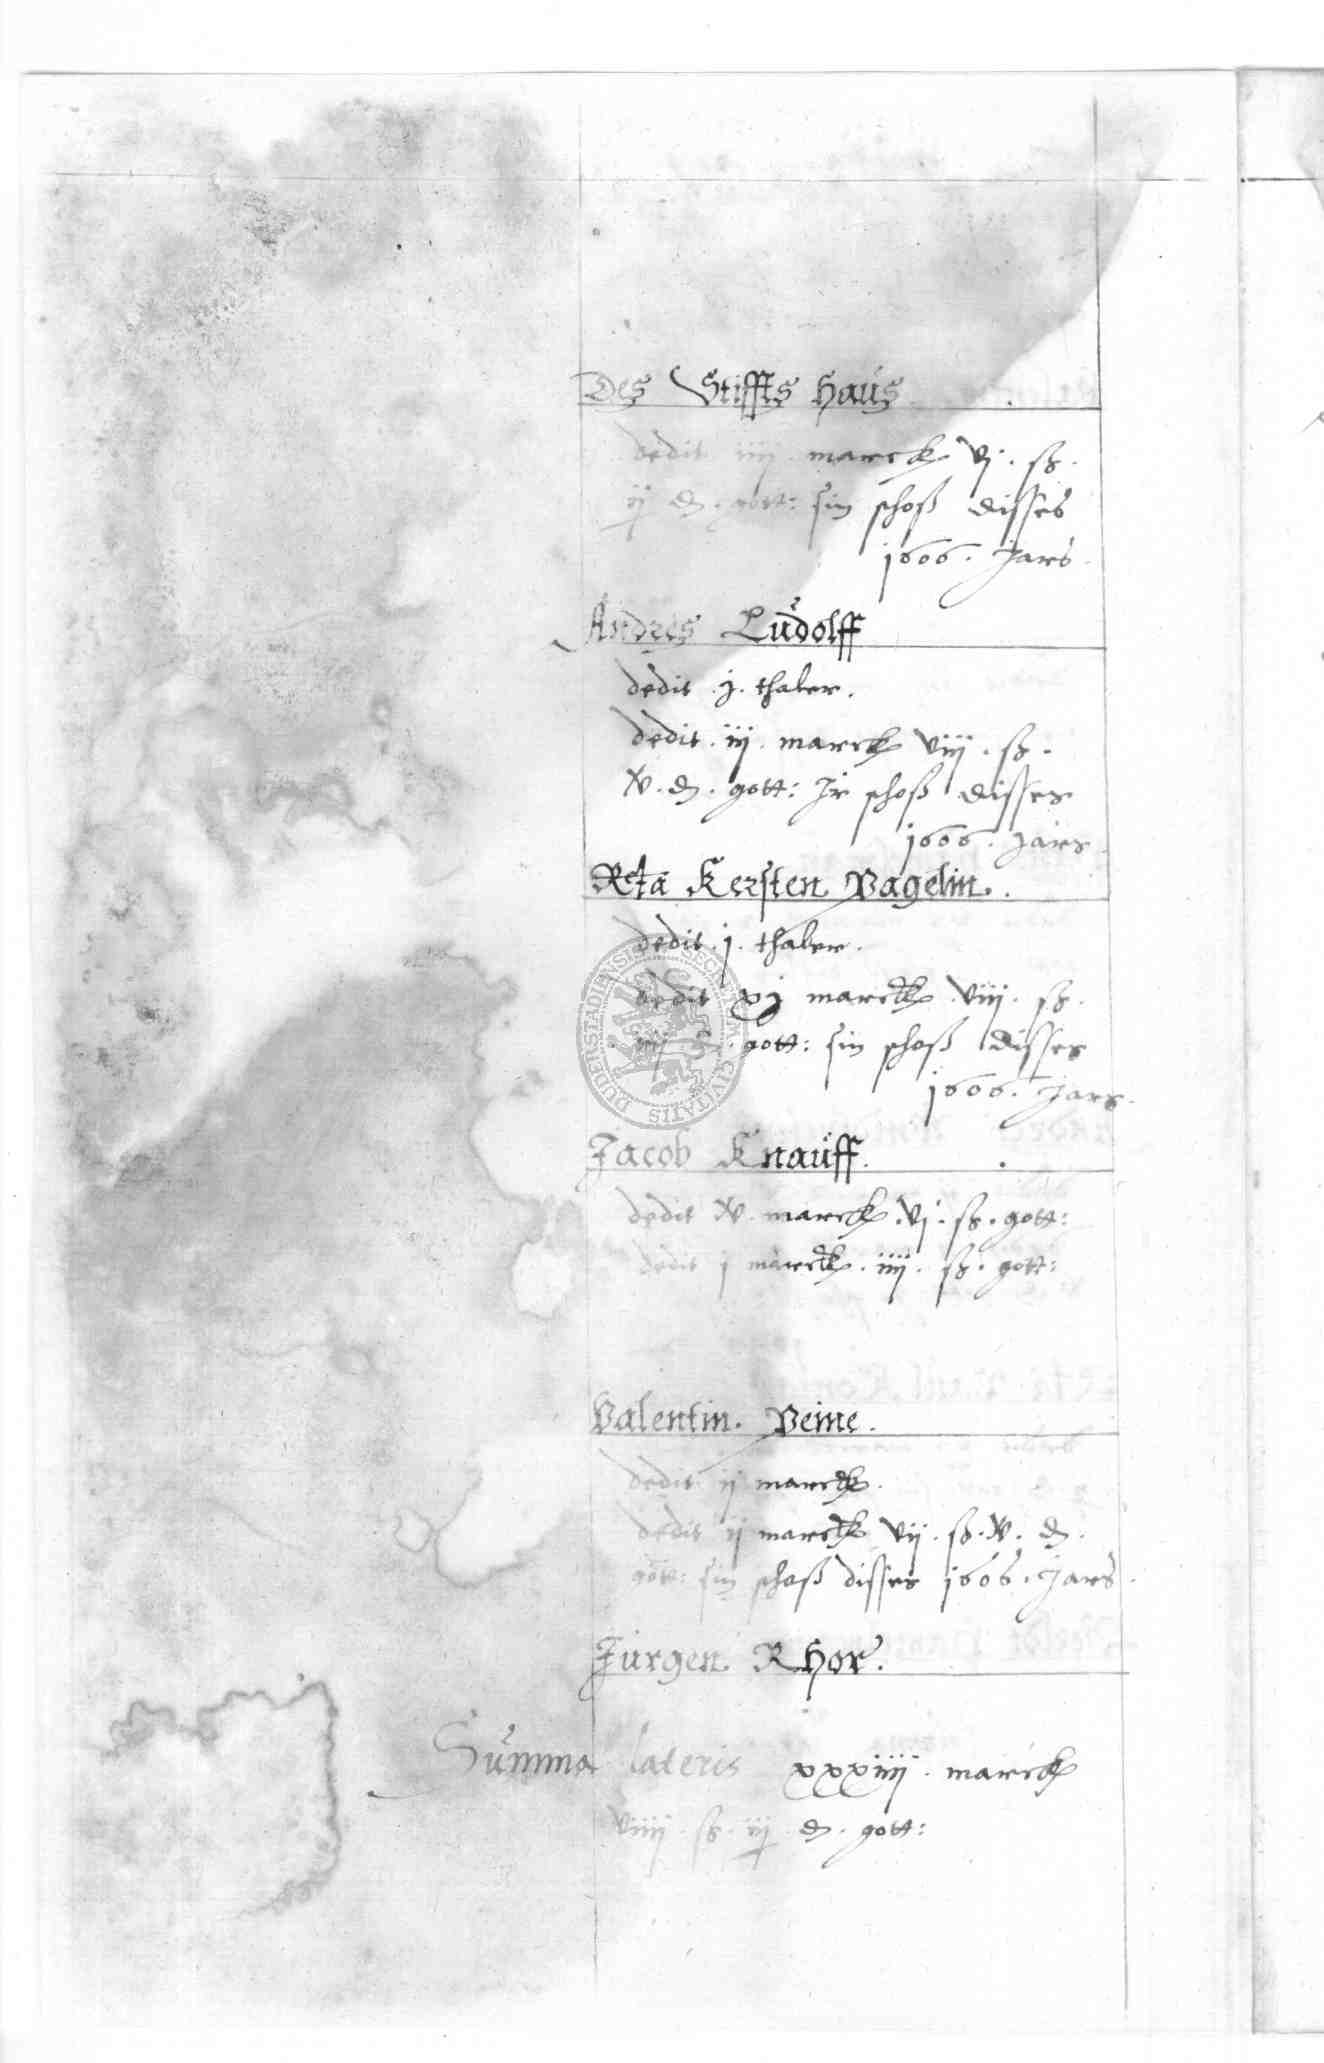 Des Stiffts Haus
dedit iiij marck vj . ß .
ij d . gott: sin schoß disses
1606 . Jars
Andres Ludolff
dedit . j . thaler .
dedit . iij . marck viij . ß .
v . d . gott: Ir schoß disses
1606 . Jars .
Rta Kersten Vagelin .
dedit . j . thaler .
dedit xj marck . viij . ß .
gott: sin schoß disses
1606 . Jars .
Jacob Knauff .
dedit v . marck . vj . ß . gott:
dedit j marck . iiij . ß . gott:
Valentin . Veine .
dedit ij marck .
dedit ij marck vij . ß . v . d .
gott: sin schoß disses 1606 . Jars .
Jurgen Rhor .
Summa lateris xxxiiij . marck
viiij . ß . iij d . gott:
DUDERSTADIENSIS SECRETUM CIVITATIS